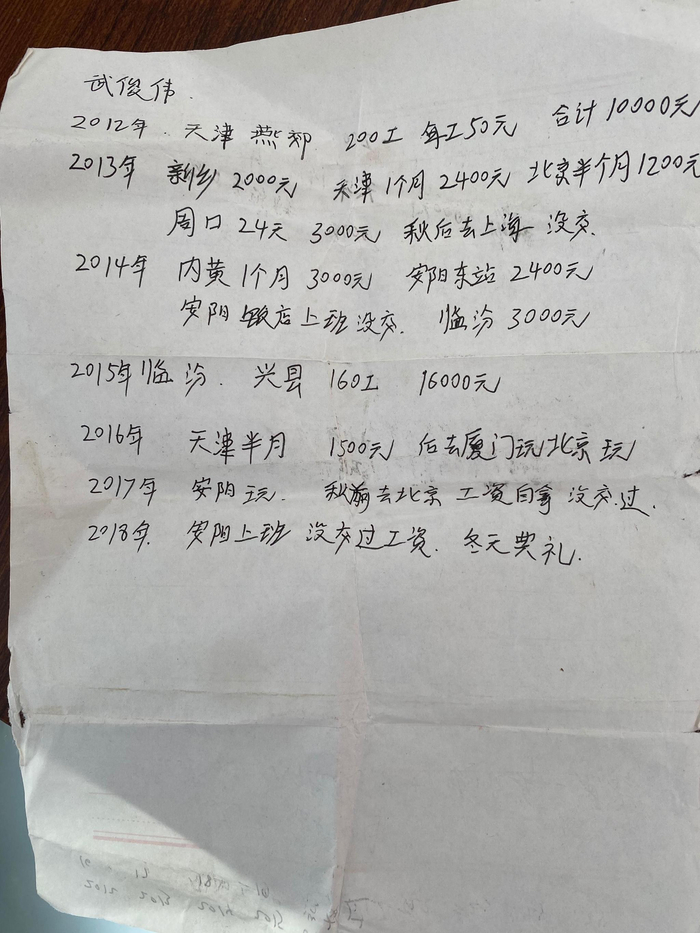 武俊伟.
2012年. 天津 燕郊 200工 每工50元 合计10000元
2013年 新乡 2000元 天津1个月2400元 北京半个月1200元
周口 24天 3000元 秋后去上海 没交.
2014年 内黄1个月 3000元 安阳东站 2400元
安阳 饭店上班没交. 临汾 3000元
2015年临汾. 兴县 160工 16000元
2016年 天津半月 1500元 后去厦门玩北京玩
2017年 安阳玩. 秋前去北京 工资自拿 没交过.
2018年 安阳上班 没交过工资. 冬天典礼.